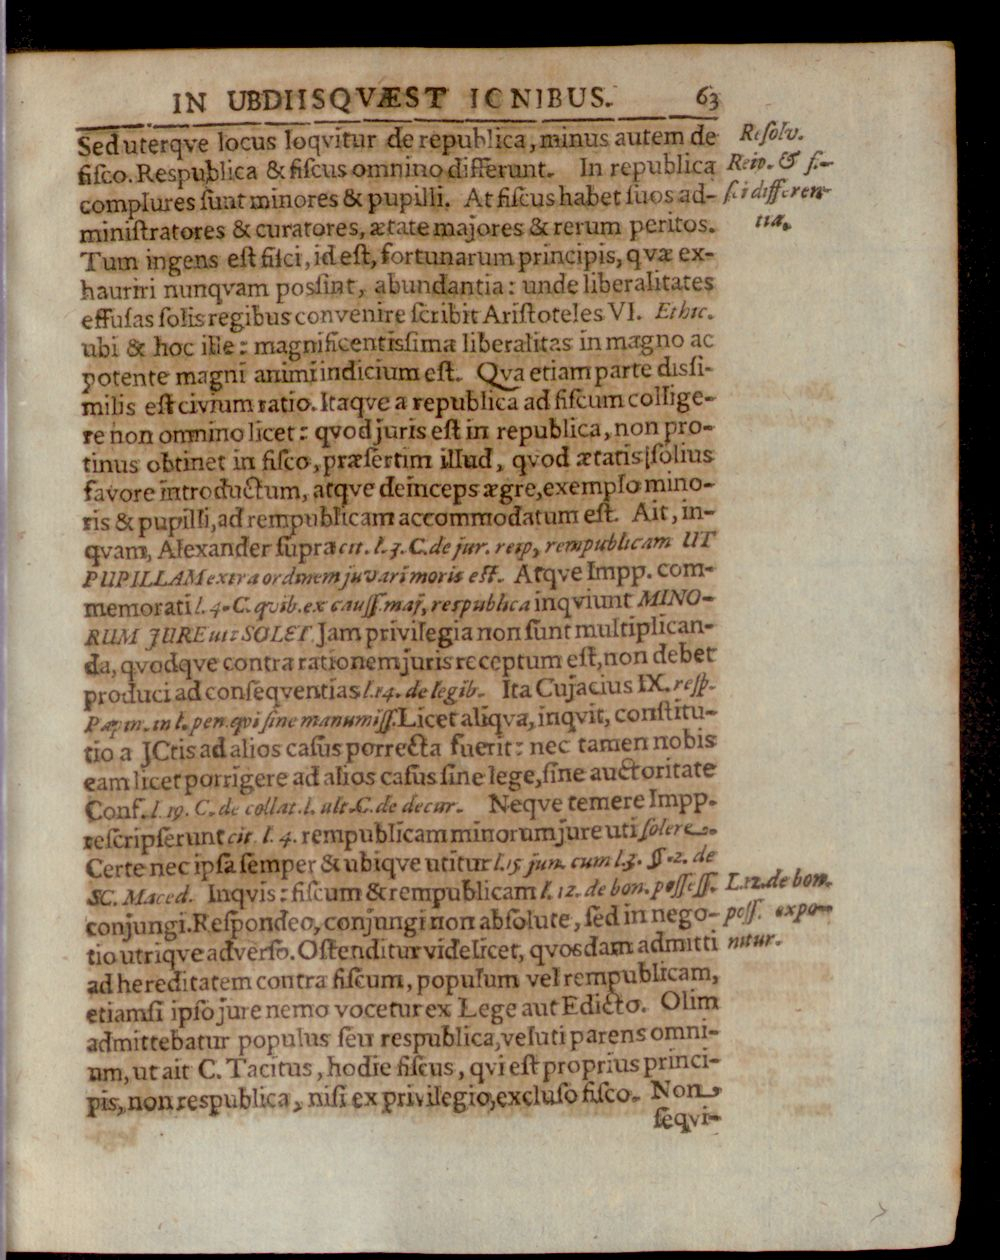 IN UBDIISQVÆST IONIBUS. 63
Seduterqve locus loqvitur de republica, minus autem de
fisco. Respublica & fiscus omnino differunt. In republica
complures sunt minores & pupilli. At fiscus habet suos ad-
ministratores & curatores, ætate majores & rerum peritos.
Tum ingens est fisci, id est, fortunarum principis, qvæ ex-
hauriri nunqvam possint, abundantia: unde liberalitates
effusas solis regibus convenire scribit Aristoteles VI. Ethic.
ubi & hoc ille: magnificentissima liberalitas in magno ac
potente magni animi indicium est. Qva etiam parte dissi-
milis est civium ratio. Itaqve a republica ad fiscum collige-
re non omnino licet: qvod juris est in republica, non pro-
tinus obtinet in fisco, præsertim illud, qvod ætatis solius
favore introductum, atqve deinceps ægre, exemplo mino-
ris & pupilli, ad rempublicam accommodatum est. Ait, in-
qvam, Alexander supra cit. l. 3. C. de jur. reip, rempublicam UT
PUPILLAM extra ordinem juvari moris est. Atqve Impp. com-
memorati l. 4. C. quib. ex causs. maj, respublica inqviunt MINO-
RUM JURE uti SOLET. Jam privilegia non sunt multiplican-
da, qvodqve contra rationem juris receptum est, non debet
produci ad conseqventias l. 14. de legib. Ita Cujacius IX. resp.
Papin. in l. pen. qvi sine manumiss. Licet aliqva, inqvit, constitu-
tio a JCtis ad alios casus porrecta fuerit: nec tamen nobis
eam licet porrigere ad alios casus sine lege, sine auctoritate
Conf. l. 19. C. de collat. l. ult. C. de decur. Neqve temere Impp.
rescripserunt cit. l. 4. rempublicam minorum jure uti solere.
Certe nec ipsa semper & ubiqve utitur l. 15 jun. cum l. 3. §. 2. de
SC. Maced. Inqvis: fiscum & rempublicam l. 12. de bon. possess.
conjungi. Respondeo, conjungi non absolute, sed in nego-
tio utriqve adverso. Ostenditur videlicet, qvosdam admitti
ad hereditatem contra fiscum, populum vel rempublicam,
etiamsi ipso jure nemo vocetur ex Lege aut Edicto. Olim
admittebatur populus seu respublica, veluti parens omni-
um, ut ait C. Tacitus, hodie fiscus, qvi est proprius princi-
pis, non respublica, nisi ex privilegio, excluso fisco. Non
seqvi-
Resolv.
Reip. & fi-
sci differen-
tia.
L. 12. de bon.
poss. expo-
nitur.